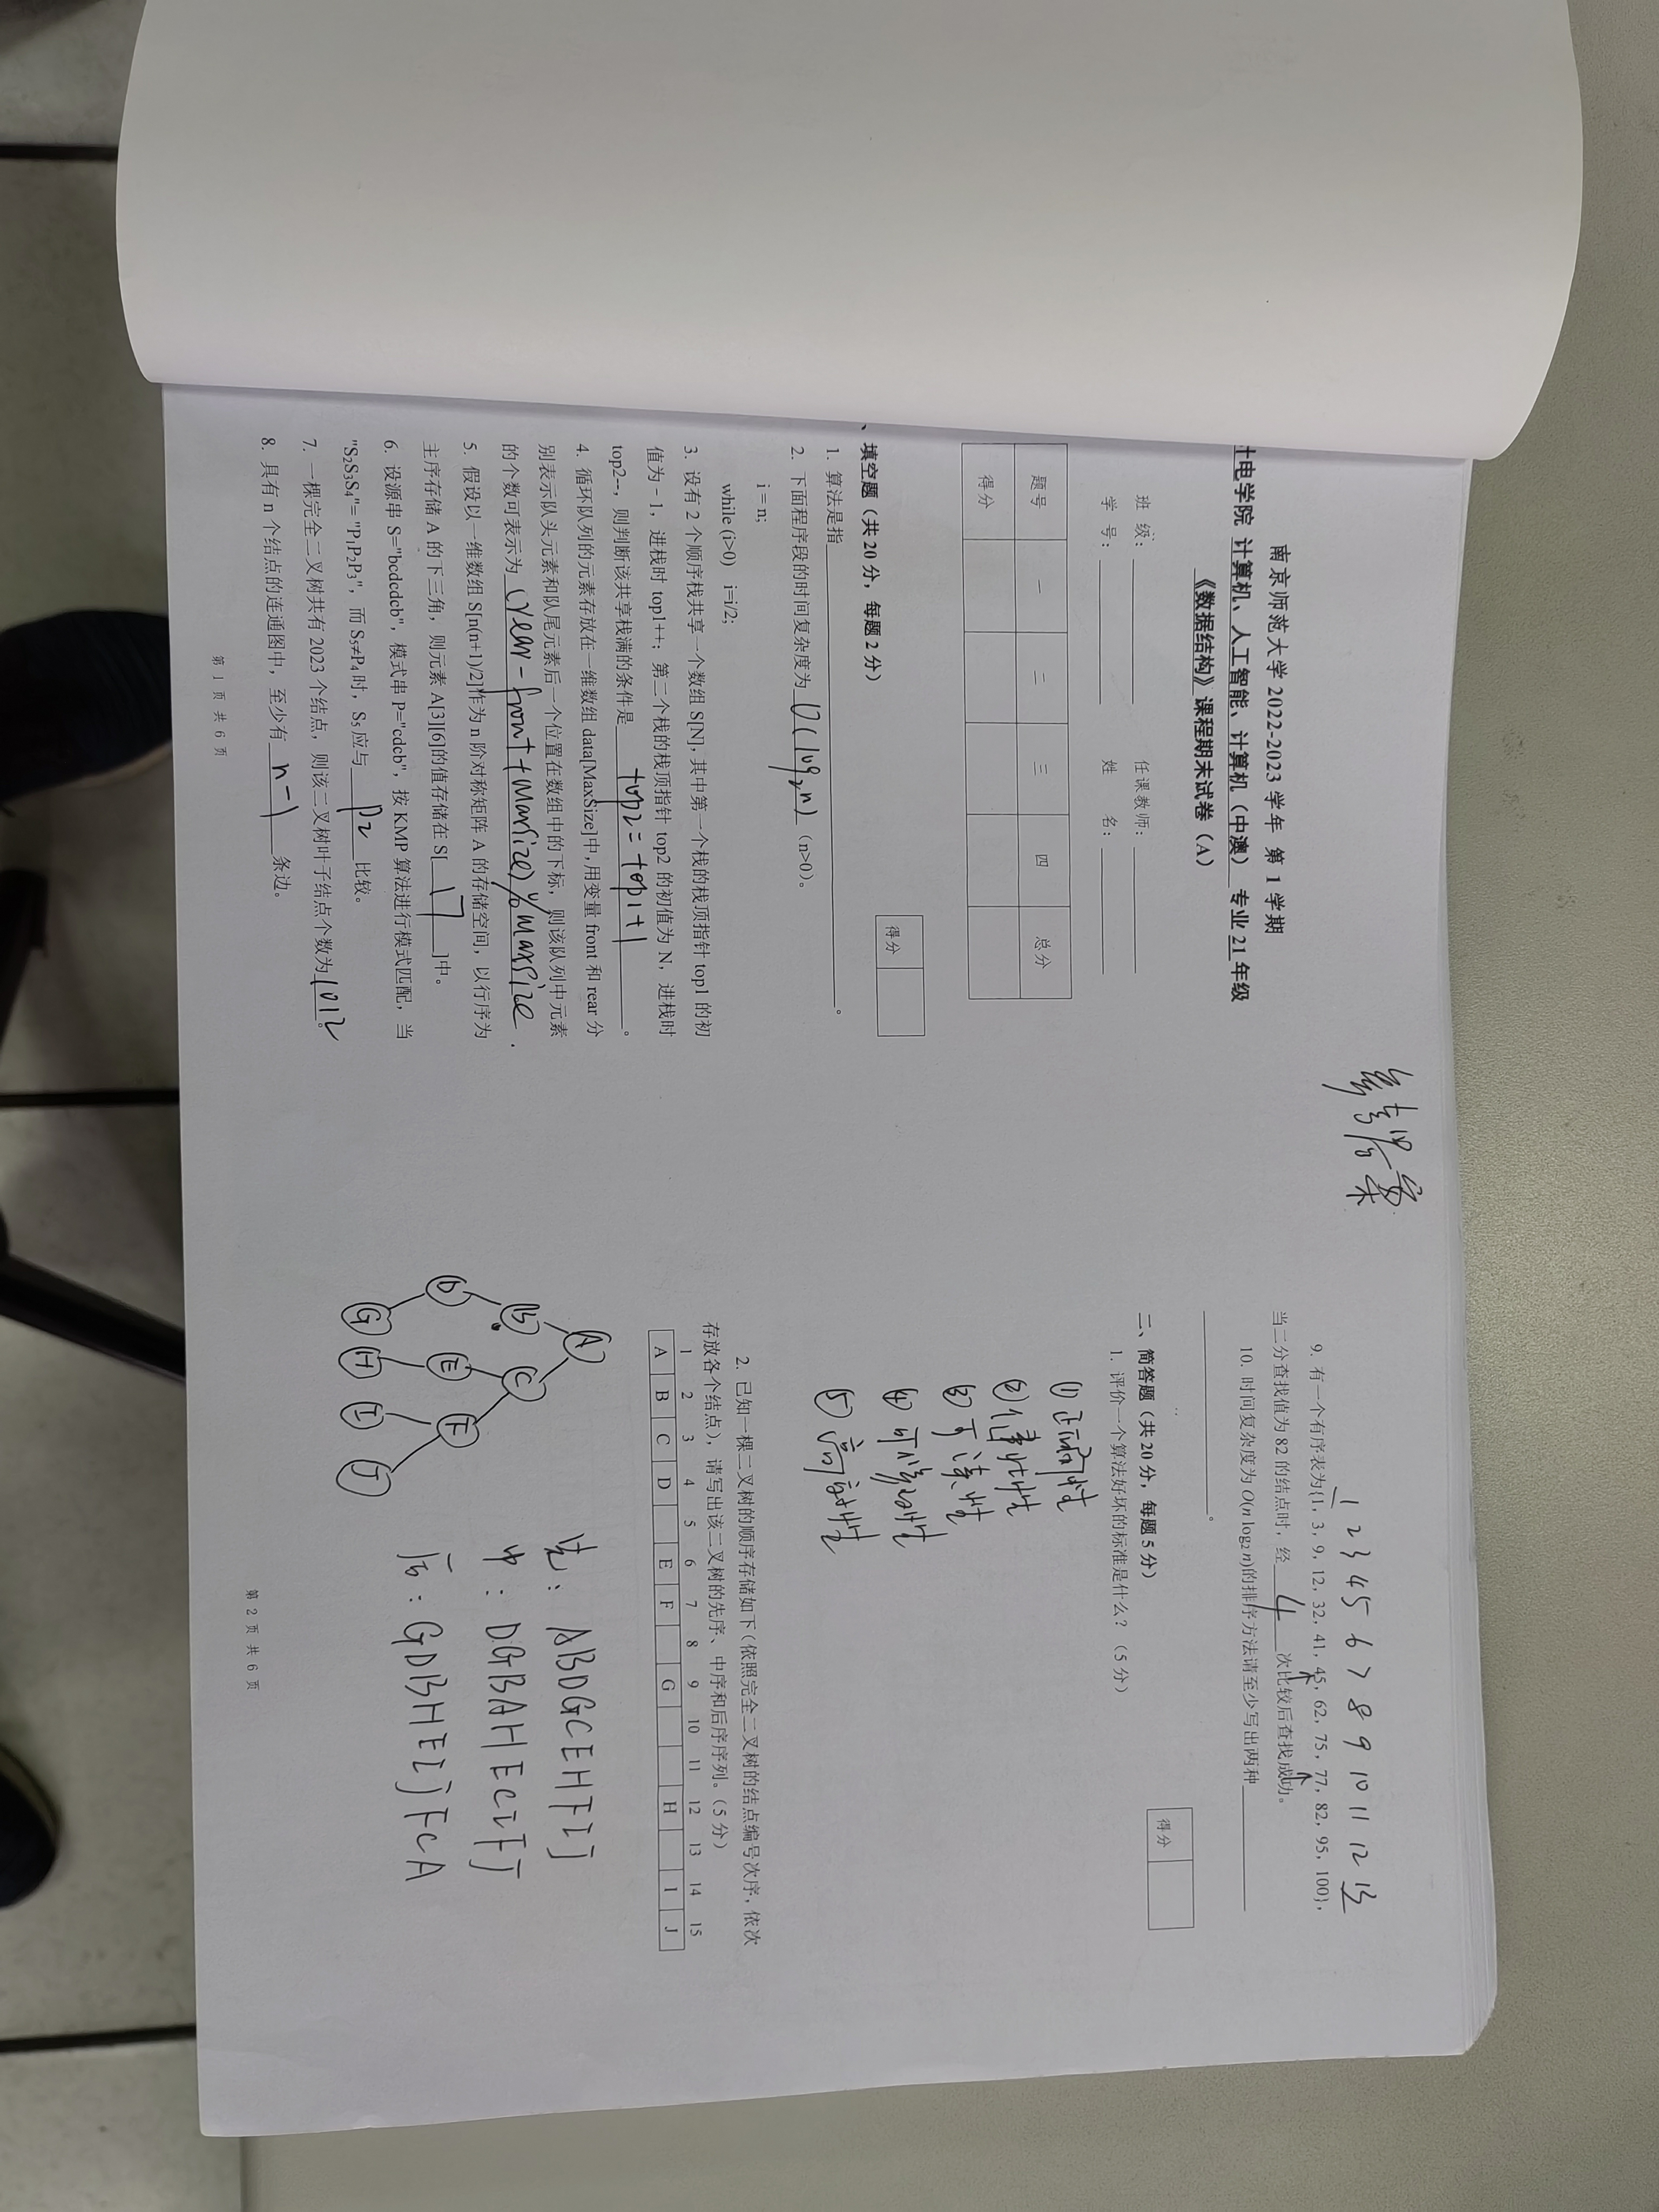 参考答案
南京师范大学 2022-2023 学年 第 1 学期
计电学院 计算机、人工智能、计算机（中澳） 专业 21 年级
《数据结构》课程期末试卷（A）
班 级： 任课教师：
学 号： 姓 名：
题号 一 二 三 四 总分
得分
得分
、填空题（共 20 分，每题 2 分）
1. 算法是指 。
2. 下面程序段的时间复杂度为 O(log₂n) （n>0）。
i = n;
while (i>0) i=i/2;
3. 设有 2 个顺序栈共享一个数组 S[N]，其中第一个栈的栈顶指针 top1 的初
值为－1，进栈时 top1++；第二个栈的栈顶指针 top2 的初值为 N，进栈时
top2--，则判断该共享栈满的条件是 top2=top1+1 。
4. 循环队列的元素存放在一维数组 data[MaxSize]中，用变量 front 和 rear 分
别表示队头元素和队尾元素后一个位置在数组中的下标，则该队列中元素
的个数可表示为 (rear-front+MaxSize)%maxsize .
5. 假设以一维数组 S[n(n+1)/2]作为 n 阶对称矩阵 A 的存储空间，以行序为
主序存储 A 的下三角，则元素 A[3][6]的值存储在 S[ 17 ]中。
6. 设源串 S="bcdcdcb"，模式串 P="cdcb"，按 KMP 算法进行模式匹配，当
"S₂S₃S₄"= "P₁P₂P₃"，而 S₅≠P₄ 时，S₅ 应与 P2 比较。
7. 一棵完全二叉树共有 2023 个结点，则该二叉树叶子结点个数为 1012 。
8. 具有 n 个结点的连通图中，至少有 n-1 条边。
第 1 页 共 6 页
1 2 3 4 5 6 7 8 9 10 11 12 13
9. 有一个有序表为{1，3，9，12，32，41，45，62，75，77，82，95，100}，
当二分查找值为 82 的结点时，经 4 次比较后查找成功。
10. 时间复杂度为 O(n log₂ n)的排序方法请至少写出两种
。
得分
二、简答题（共 20 分，每题 5 分）
1. 评价一个算法好坏的标准是什么？（5 分）
① 正确性
② 健壮性
③ 可读性
④ 可修改性
⑤ 高效性
2. 已知一棵二叉树的顺序存储如下（依照完全二叉树的结点编号次序，依次
存放各个结点），请写出该二叉树的先序、中序和后序序列。（5 分）
1 2 3 4 5 6 7 8 9 10 11 12 13 14 15
A B C D E F G H I J
A
B C
D E F
G H I J
先：ABDGCEHFIJ
中：DGBAHECIFJ
后：GDBHEIJFCA
第 2 页 共 6 页